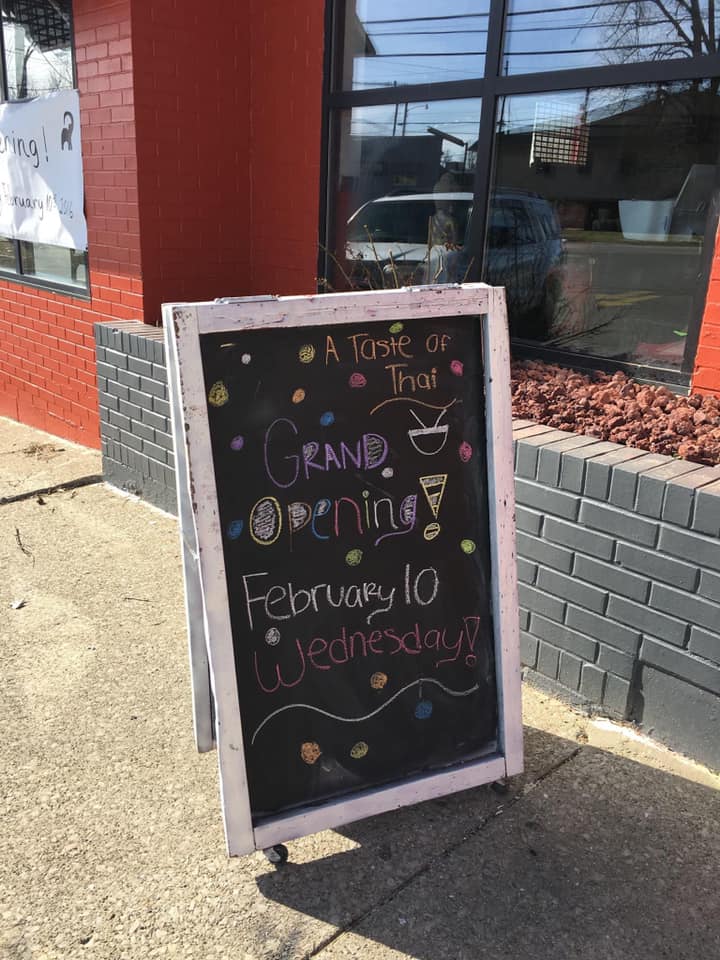 ening!
February 10th 2016
A Taste of
Thai
GRAND
Opening!
February 10
Wednesday!